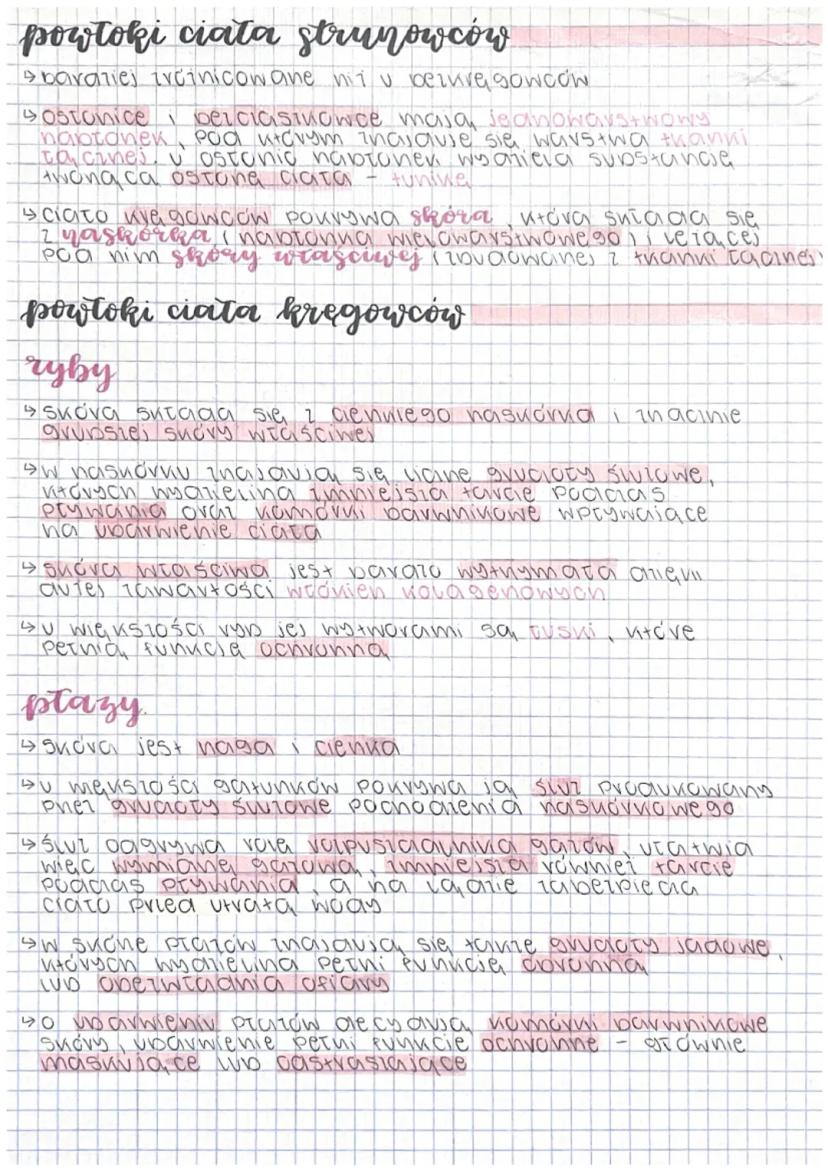 powłoki ciała strunowców
↳ bardziej zróżnicowane niż u bezkręgowców
↳ osłonice i bezczaszkowce mają jednowarstwowy
nabłonek, pod którym znajduje się warstwa tkanki
łącznej, u osłonic nabłonek wydziela substancję
tworzącą osłonę ciała - tunikę
↳ ciało kręgowców pokrywa skóra, która składa się
z naskórka (nabłonka wielowarstwowego) i leżącej
pod nim skóry właściwej (zbudowanej z tkanki łącznej)
powłoki ciała kręgowców
ryby
↳ skóra składa się z cienkiego naskórka i znacznie
grubszej skóry właściwej
↳ w naskórku znajdują się liczne gruczoły śluzowe,
których wydzielina zmniejsza tarcie podczas
pływania oraz komórki barwnikowe wpływające
na ubarwienie ciała
↳ skóra właściwa jest bardzo wytrzymała dzięki
dużej zawartości włókien kolagenowych
↳ u większości ryb jej wytworami są łuski, które
pełnią funkcję ochronną
płazy
↳ skóra jest naga i cienka
↳ u większości gatunków pokrywa ją śluz produkowany
przez gruczoły śluzowe pochodzenia naskórkowego
↳ śluz odgrywa rolę rozpuszczalnika gazów, ułatwia
więc wymianę gazową, zmniejsza również tarcie
podczas pływania, a na lądzie zabezpiecza
ciało przed utratą wody
↳ w skórze płazów znajdują się także gruczoły jadowe,
których wydzielina pełni funkcję obronną
lub obezwładnia ofiary
↳ o ubarwieniu płazów decydują komórki barwnikowe
skóry, ubarwienie pełni funkcje ochronne - głównie
maskujące lub odstraszające